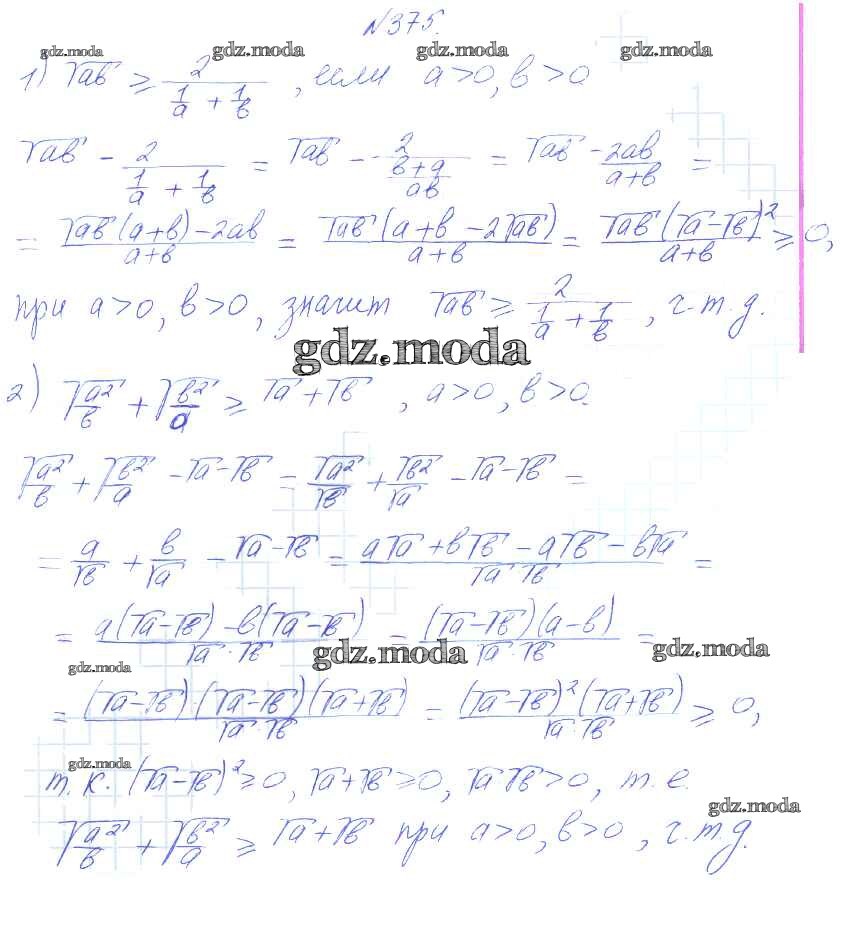 №375.
gdz.moda gdz.moda gdz.moda gdz.moda
1) √ab ≥ 2/(1/a + 1/b), если a>0, b>0
√ab - 2/(1/a + 1/b) = √ab - 2/((b+a)/ab) = √ab - 2ab/(a+b) =
= (√ab (a+b) - 2ab)/(a+b) = (√ab (a+b - 2√ab))/(a+b) = (√ab (√a-√b)²)/(a+b) ≥ 0,
при a>0, b>0, значит √ab ≥ 2/(1/a + 1/b), ч.т.д.
gdz.moda
2) √(a²/b) + √(b²/a) ≥ √a + √b, a>0, b>0.
√(a²/b) + √(b²/a) - √a - √b = √a²/√b + √b²/√a - √a - √b =
= a/√b + b/√a - √a - √b = (a√a + b√b - a√b - b√a)/(√a √b) =
= (a(√a-√b) - b(√a-√b))/(√a·√b) = ((√a-√b)(a-b))/(√a·√b) =
gdz.moda gdz.moda gdz.moda
= ((√a-√b)·(√a-√b)(√a+√b))/(√a·√b) = ((√a-√b)²(√a+√b))/(√a·√b) ≥ 0,
gdz.moda
т.к. (√a-√b)²≥0, √a+√b≥0, √a√b>0, т.е.
gdz.moda
√(a²/b) + √(b²/a) ≥ √a+√b при a>0, b>0, ч.т.д.